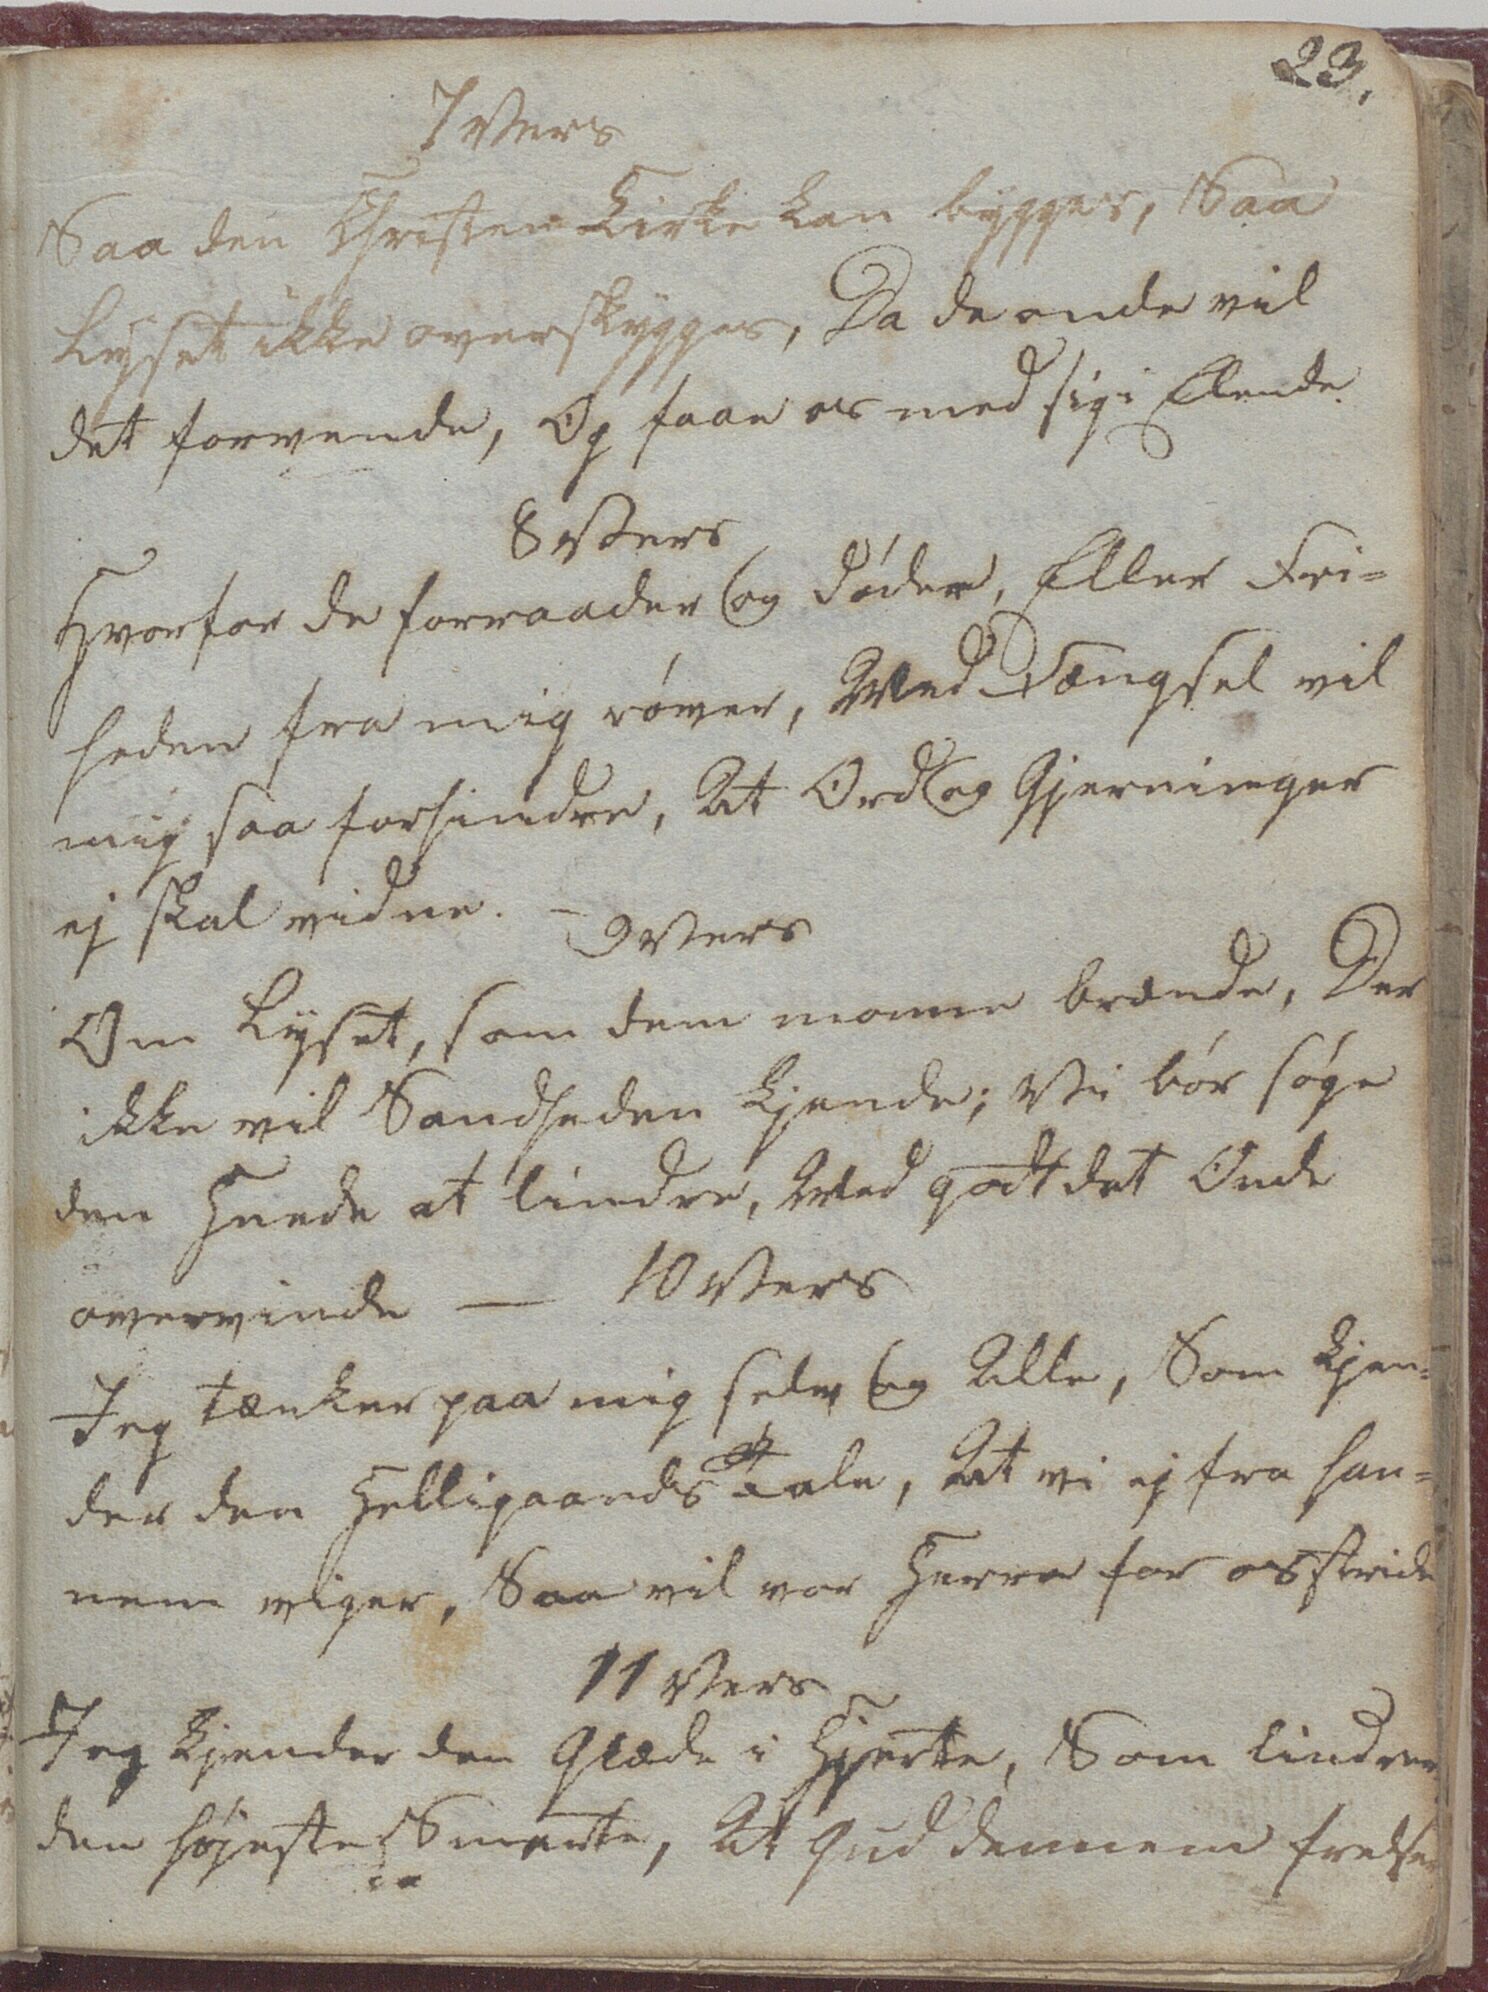 23.
7 Vers
Saa den Christen Kirke kan bygges, Saa
Lyset ikke overskygges, Da de onde vil
det forvende, Og faae os med sig i Elende
8 Vers
Hvorfor de forraader og døder, Eller Fri=
heden fra mig røver, Med Fængsel vil
mig saa forhindre, At Ord og Gjerninger
ej skal vidne. –
9 Vers
Om Lyset, som dem monne brænde, Der
ikke vil Sandheden kjende; Vi bør søge
den Heede at lindre, Med godt det Onde
overvinde —
10 Vers
Jeg tænker paa mig selv og Alle, Som kjen=
der den Helligaands Tale, At vi ej fra han=
nem viger, Saa vil vor Herre for os stride
11 Vers
Jeg kjender den Glæde i Hjerte, Som lindrer
den højeste Smerte, At Gud dennem frelser